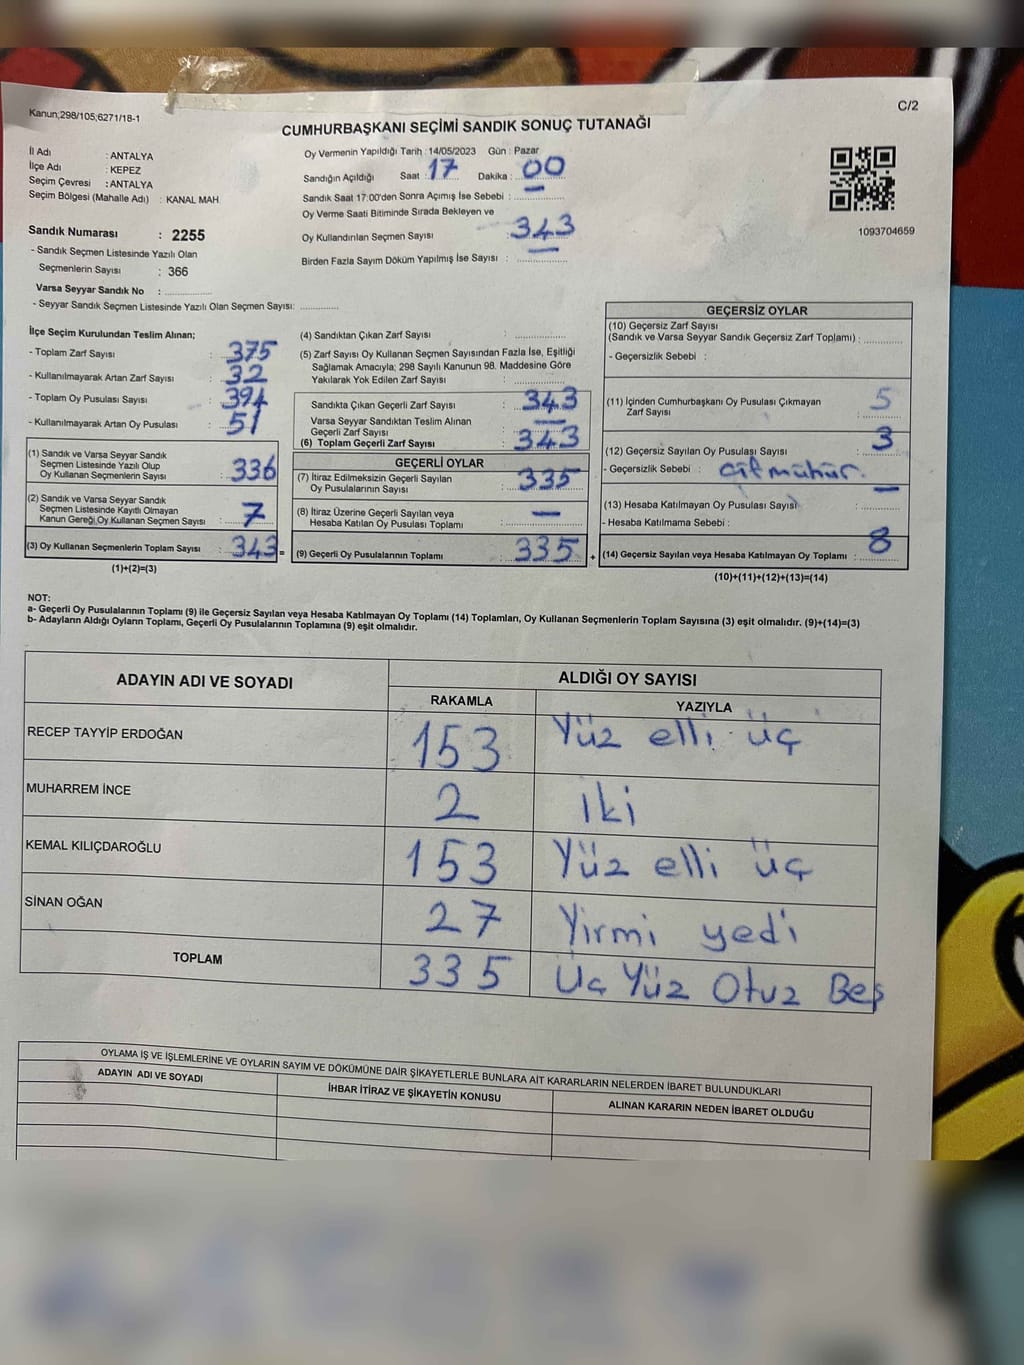 Kanun;298/105;6271/18-1
C/2
CUMHURBAŞKANI SEÇİMİ SANDIK SONUÇ TUTANAĞI
İl Adı : ANTALYA
İlçe Adı : KEPEZ
Seçim Çevresi : ANTALYA
Seçim Bölgesi (Mahalle Adı) : KANAL MAH.
Oy Vermenin Yapıldığı Tarih :14/05/2023 Gün : Pazar
Sandığın Açıldığı Saat : 17 Dakika : 00
Sandık Saat 17:00'den Sonra Açımış İse Sebebi : —
Oy Verme Saati Bitiminde Sırada Bekleyen ve
Oy Kullandırılan Seçmen Sayısı : 343
Birden Fazla Sayım Döküm Yapılmış İse Sayısı : —
1093704659
Sandık Numarası : 2255
- Sandık Seçmen Listesinde Yazılı Olan
Seçmenlerin Sayısı : 366
Varsa Seyyar Sandık No :
- Seyyar Sandık Seçmen Listesinde Yazılı Olan Seçmen Sayısı:
İlçe Seçim Kurulundan Teslim Alınan;
- Toplam Zarf Sayısı : 375
- Kullanılmayarak Artan Zarf Sayısı : 32
- Toplam Oy Pusulası Sayısı : 394
- Kullanılmayarak Artan Oy Pusulası : 51
(1) Sandık ve Varsa Seyyar Sandık
Seçmen Listesinde Yazılı Olup
Oy Kullanan Seçmenlerin Sayısı : 336
(2) Sandık ve Varsa Seyyar Sandık
Seçmen Listesinde Kayıtlı Olmayan
Kanun Gereği Oy Kullanan Seçmen Sayısı : 7
(3) Oy Kullanan Seçmenlerin Toplam Sayısı : 343 =
(1)+(2)=(3)
(4) Sandıktan Çıkan Zarf Sayısı :
(5) Zarf Sayısı Oy Kullanan Seçmen Sayısından Fazla İse, Eşitliği
Sağlamak Amacıyla; 298 Sayılı Kanunun 98. Maddesine Göre
Yakılarak Yok Edilen Zarf Sayısı :
Sandıkta Çıkan Geçerli Zarf Sayısı : 343
Varsa Seyyar Sandıktan Teslim Alınan
Geçerli Zarf Sayısı : —
(6) Toplam Geçerli Zarf Sayısı : 343
GEÇERLİ OYLAR
(7) İtiraz Edilmeksizin Geçerli Sayılan
Oy Pusulalarının Sayısı : 335
(8) İtiraz Üzerine Geçerli Sayılan veya
Hesaba Katılan Oy Pusulası Toplamı : —
(9) Geçerli Oy Pusulalarının Toplamı : 335 +
GEÇERSİZ OYLAR
(10) Geçersiz Zarf Sayısı
(Sandık ve Varsa Seyyar Sandık Geçersiz Zarf Toplamı) :
- Geçersizlik Sebebi :
(11) İçinden Cumhurbaşkanı Oy Pusulası Çıkmayan
Zarf Sayısı : 5
(12) Geçersiz Sayılan Oy Pusulası Sayısı : 3
- Geçersizlik Sebebi : çift mühür.
(13) Hesaba Katılmayan Oy Pusulası Sayısı : —
- Hesaba Katılmama Sebebi :
(14) Geçersiz Sayılan veya Hesaba Katılmayan Oy Toplamı : 8
(10)+(11)+(12)+(13)=(14)
NOT:
a- Geçerli Oy Pusulalarının Toplamı (9) ile Geçersiz Sayılan veya Hesaba Katılmayan Oy Toplamı (14) Toplamları, Oy Kullanan Seçmenlerin Toplam Sayısına (3) eşit olmalıdır. (9)+(14)=(3)
b- Adayların Aldığı Oyların Toplamı, Geçerli Oy Pusulalarının Toplamına (9) eşit olmalıdır.
ADAYIN ADI VE SOYADI ALDIĞI OY SAYISI
RAKAMLA YAZIYLA
RECEP TAYYİP ERDOĞAN 153 Yüz elli üç
MUHARREM İNCE 2 iki
KEMAL KILIÇDAROĞLU 153 Yüz elli üç
SİNAN OĞAN 27 Yirmi yedi
TOPLAM 335 Üç Yüz Otuz Beş
OYLAMA İŞ VE İŞLEMLERİNE VE OYLARIN SAYIM VE DÖKÜMÜNE DAİR ŞİKAYETLERLE BUNLARA AİT KARARLARIN NELERDEN İBARET BULUNDUKLARI
ADAYIN ADI VE SOYADI İHBAR İTİRAZ VE ŞİKAYETİN KONUSU ALINAN KARARIN NEDEN İBARET OLDUĞU